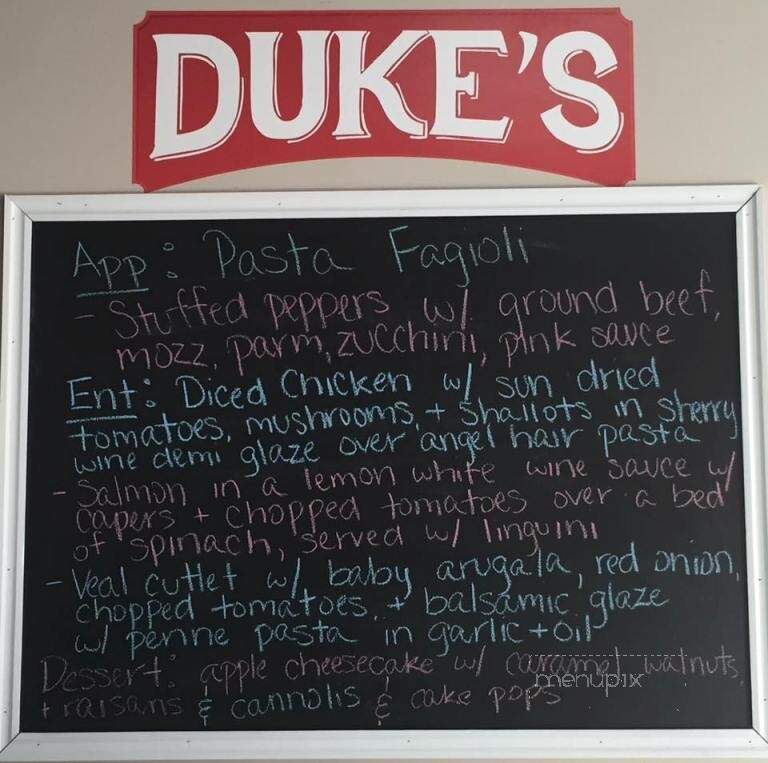 DUKE'S
App: Pasta Fagioli
- Stuffed peppers w/ ground beef,
mozz, parm, zucchini, pink sauce
Ent: Diced Chicken w/ sun dried
tomatoes, mushrooms, + shallots in sherry
wine demi glaze over angel hair pasta
- Salmon in a lemon white wine sauce w/
capers + chopped tomatoes over a bed
of spinach, served w/ linguini
- Veal cutlet w/ baby arugala, red onion,
chopped tomatoes, + balsamic glaze
w/ penne pasta in garlic + oil
Dessert: apple cheesecake w/ caramel walnuts,
+ raisans & cannolis & cake pops
menupix